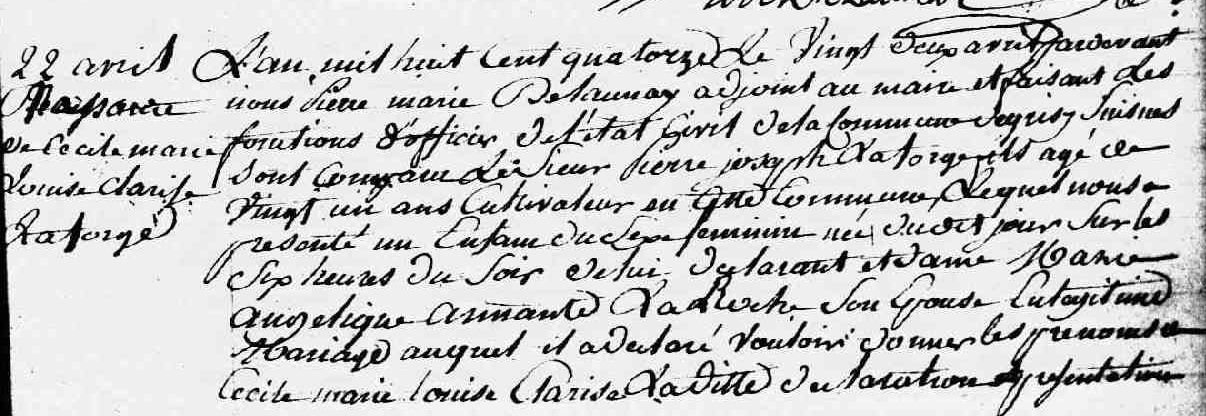 22 avril
Naissance
de Cécile marie
Louise Clarise
Laforge
L'an mil huit Cent quatorze Le Vingt deux avril pardevant
nous Pierre marie Delaunay adjoint au maire et faisant les
fonctions d'officier de l'état Civil de la Commune de grisy Suisnes
sont Comparu Le Sieur Pierre joseph Laforge fils agé de
Vingt un ans Cultivateur en Cette Commune, Lequel nous a
presenté un Enfant du Sexe feminin né, du dit jour Sur les
Six heures du Soir de lui declarant et dame Marie
angelique armante LaRoche Son Epouse En legitime
Mariage auquel il a declaré Vouloir donner les prenoms de
Cecile marie Louise Clarise La ditte declaration et presentation